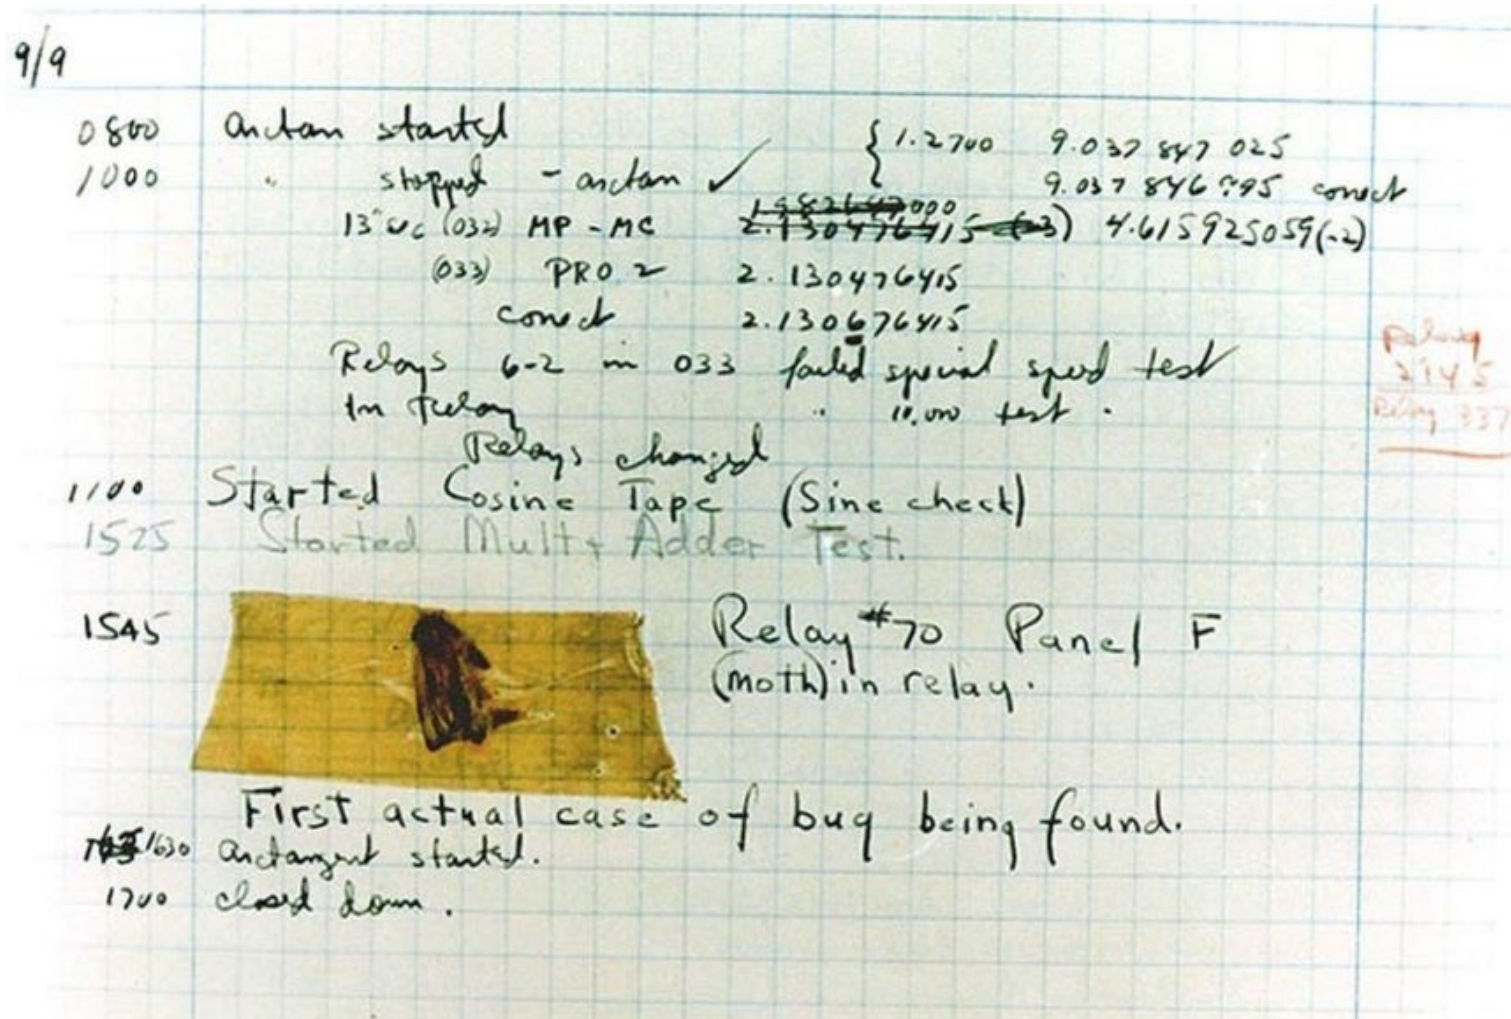 9/9
0800 arctan started { 1.2700 9.037 847 025
1000 " stopped - arctan ✓ 9.037 846 995 correct
13"uc (032) MP - MC 1.982647000
2.130476415 (-3) 4.615925059(-2)
(033) PRO 2 2.130476415
correct 2.130676415
Relays 6-2 in 033 failed special speed test
In relay " 10,000 test.
Relay
2145
Relay 337
Relays changed
1100 Started Cosine Tape (Sine check)
1525 Started Mult+ Adder Test.
1545 Relay #70 Panel F
(moth) in relay.
First actual case of bug being found.
1630 arctangent started.
1700 closed down.